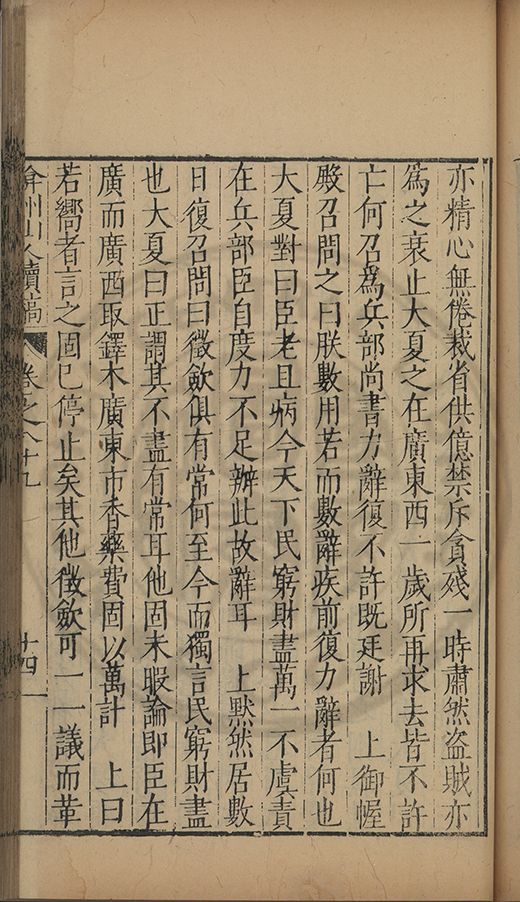 亦精心無倦裁省供億禁斥貪殘一時肅然盜賊亦
爲之衰止大夏之在廣東西一歲所再求去皆不許
亡何召爲兵部尚書力辭復不許既廷謝　上御幄
殿召問之曰朕數用若而數辭疾前復力辭者何也
大夏對曰臣老且病今天下民窮財盡萬一不虞責
在兵部臣自度力不足辦此故辭耳　上默然居數
日復召問曰徵斂俱有常何至今而獨言民窮財盡
也大夏曰正謂其不盡有常耳他固未暇論即臣在
廣而廣西取鐸木廣東市香藥費固以萬計　上曰
若嚮者言之固已停止矣其他徵斂可一一議而革
弇州山人續稿　卷之八十九　十四